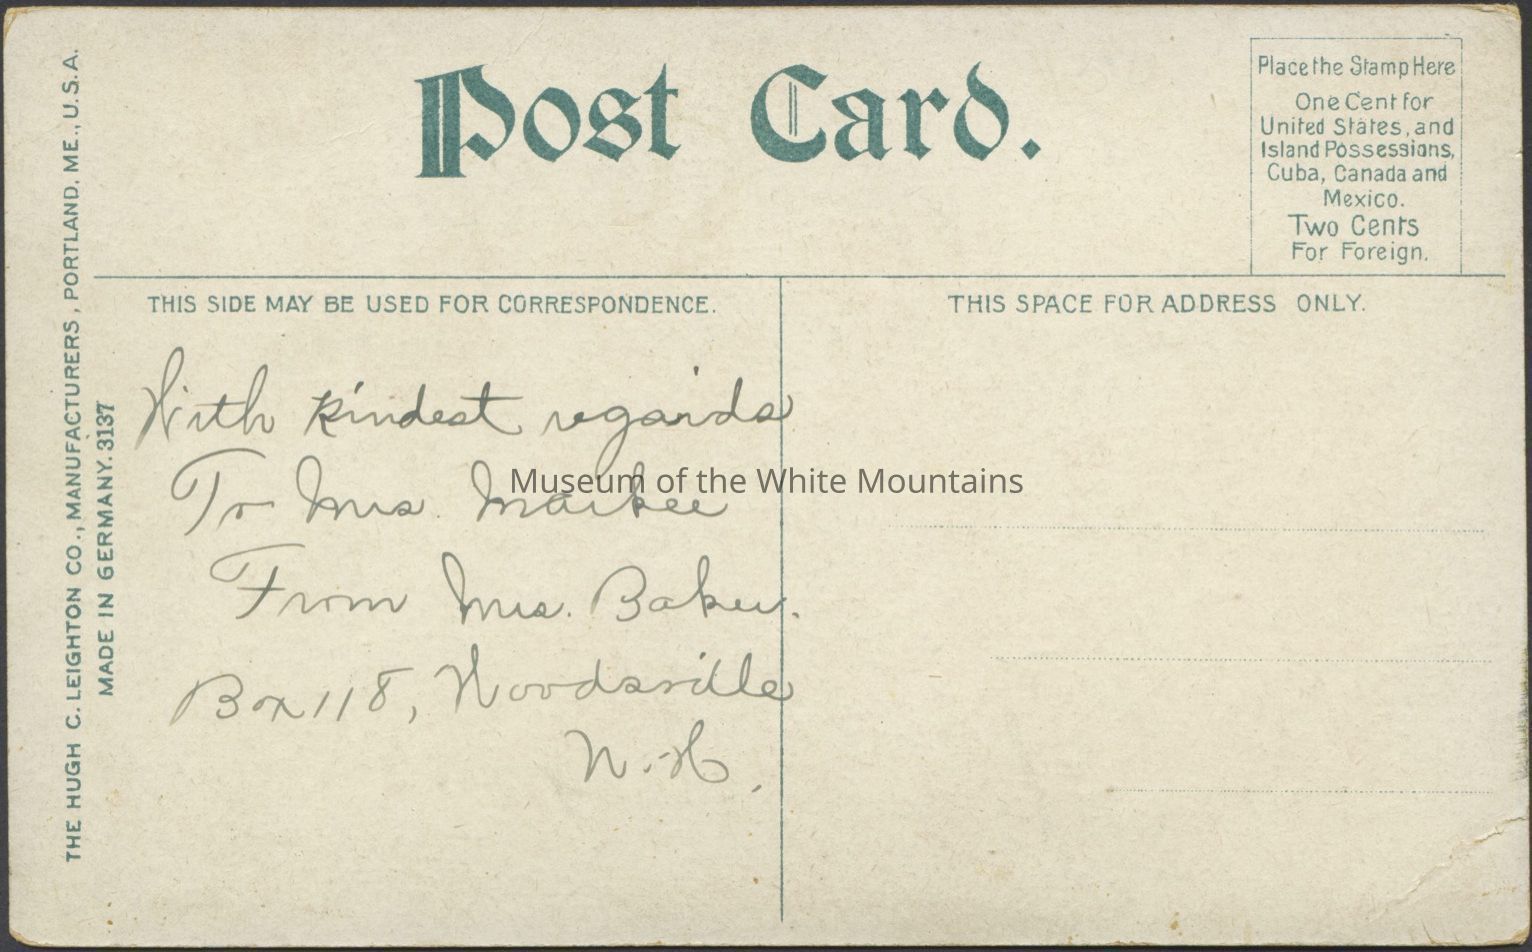 Post Card.
Place the Stamp Here
One Cent for
United States, and
Island Possessions,
Cuba, Canada and
Mexico.
Two Cents
For Foreign.
THE HUGH C. LEIGHTON CO., MANUFACTURERS, PORTLAND, ME., U.S.A.
MADE IN GERMANY. 3137
THIS SIDE MAY BE USED FOR CORRESPONDENCE.
With kindest regards
To Mrs. Markee
From Mrs. Baker.
Box 118, Woodsville
N.H.
THIS SPACE FOR ADDRESS ONLY.
Museum of the White Mountains